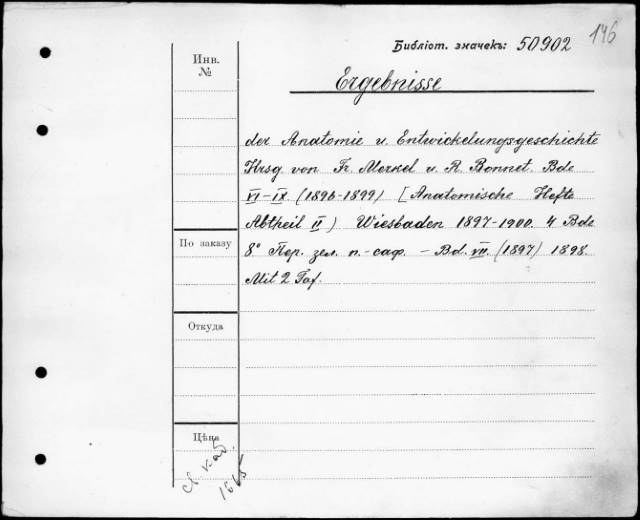 146
Библіот. значекъ: 50902
Инв.
№
Ergebnisse
der Anatomie u. Entwickelungsgeschichte
Hrsg von Fr. Merkel u. R. Bonnet. Bde
VI-IX (1896-1899) [Anatomische Hefte
Abtheil II) Wiesbaden 1897-1900. 4 Bde
По заказу
8° Пер. зел. п.-саф. - Bd. VII. (1897) 1898.
Mit 2 Taf.
Откуда
Цѣна
св. каб.
1665